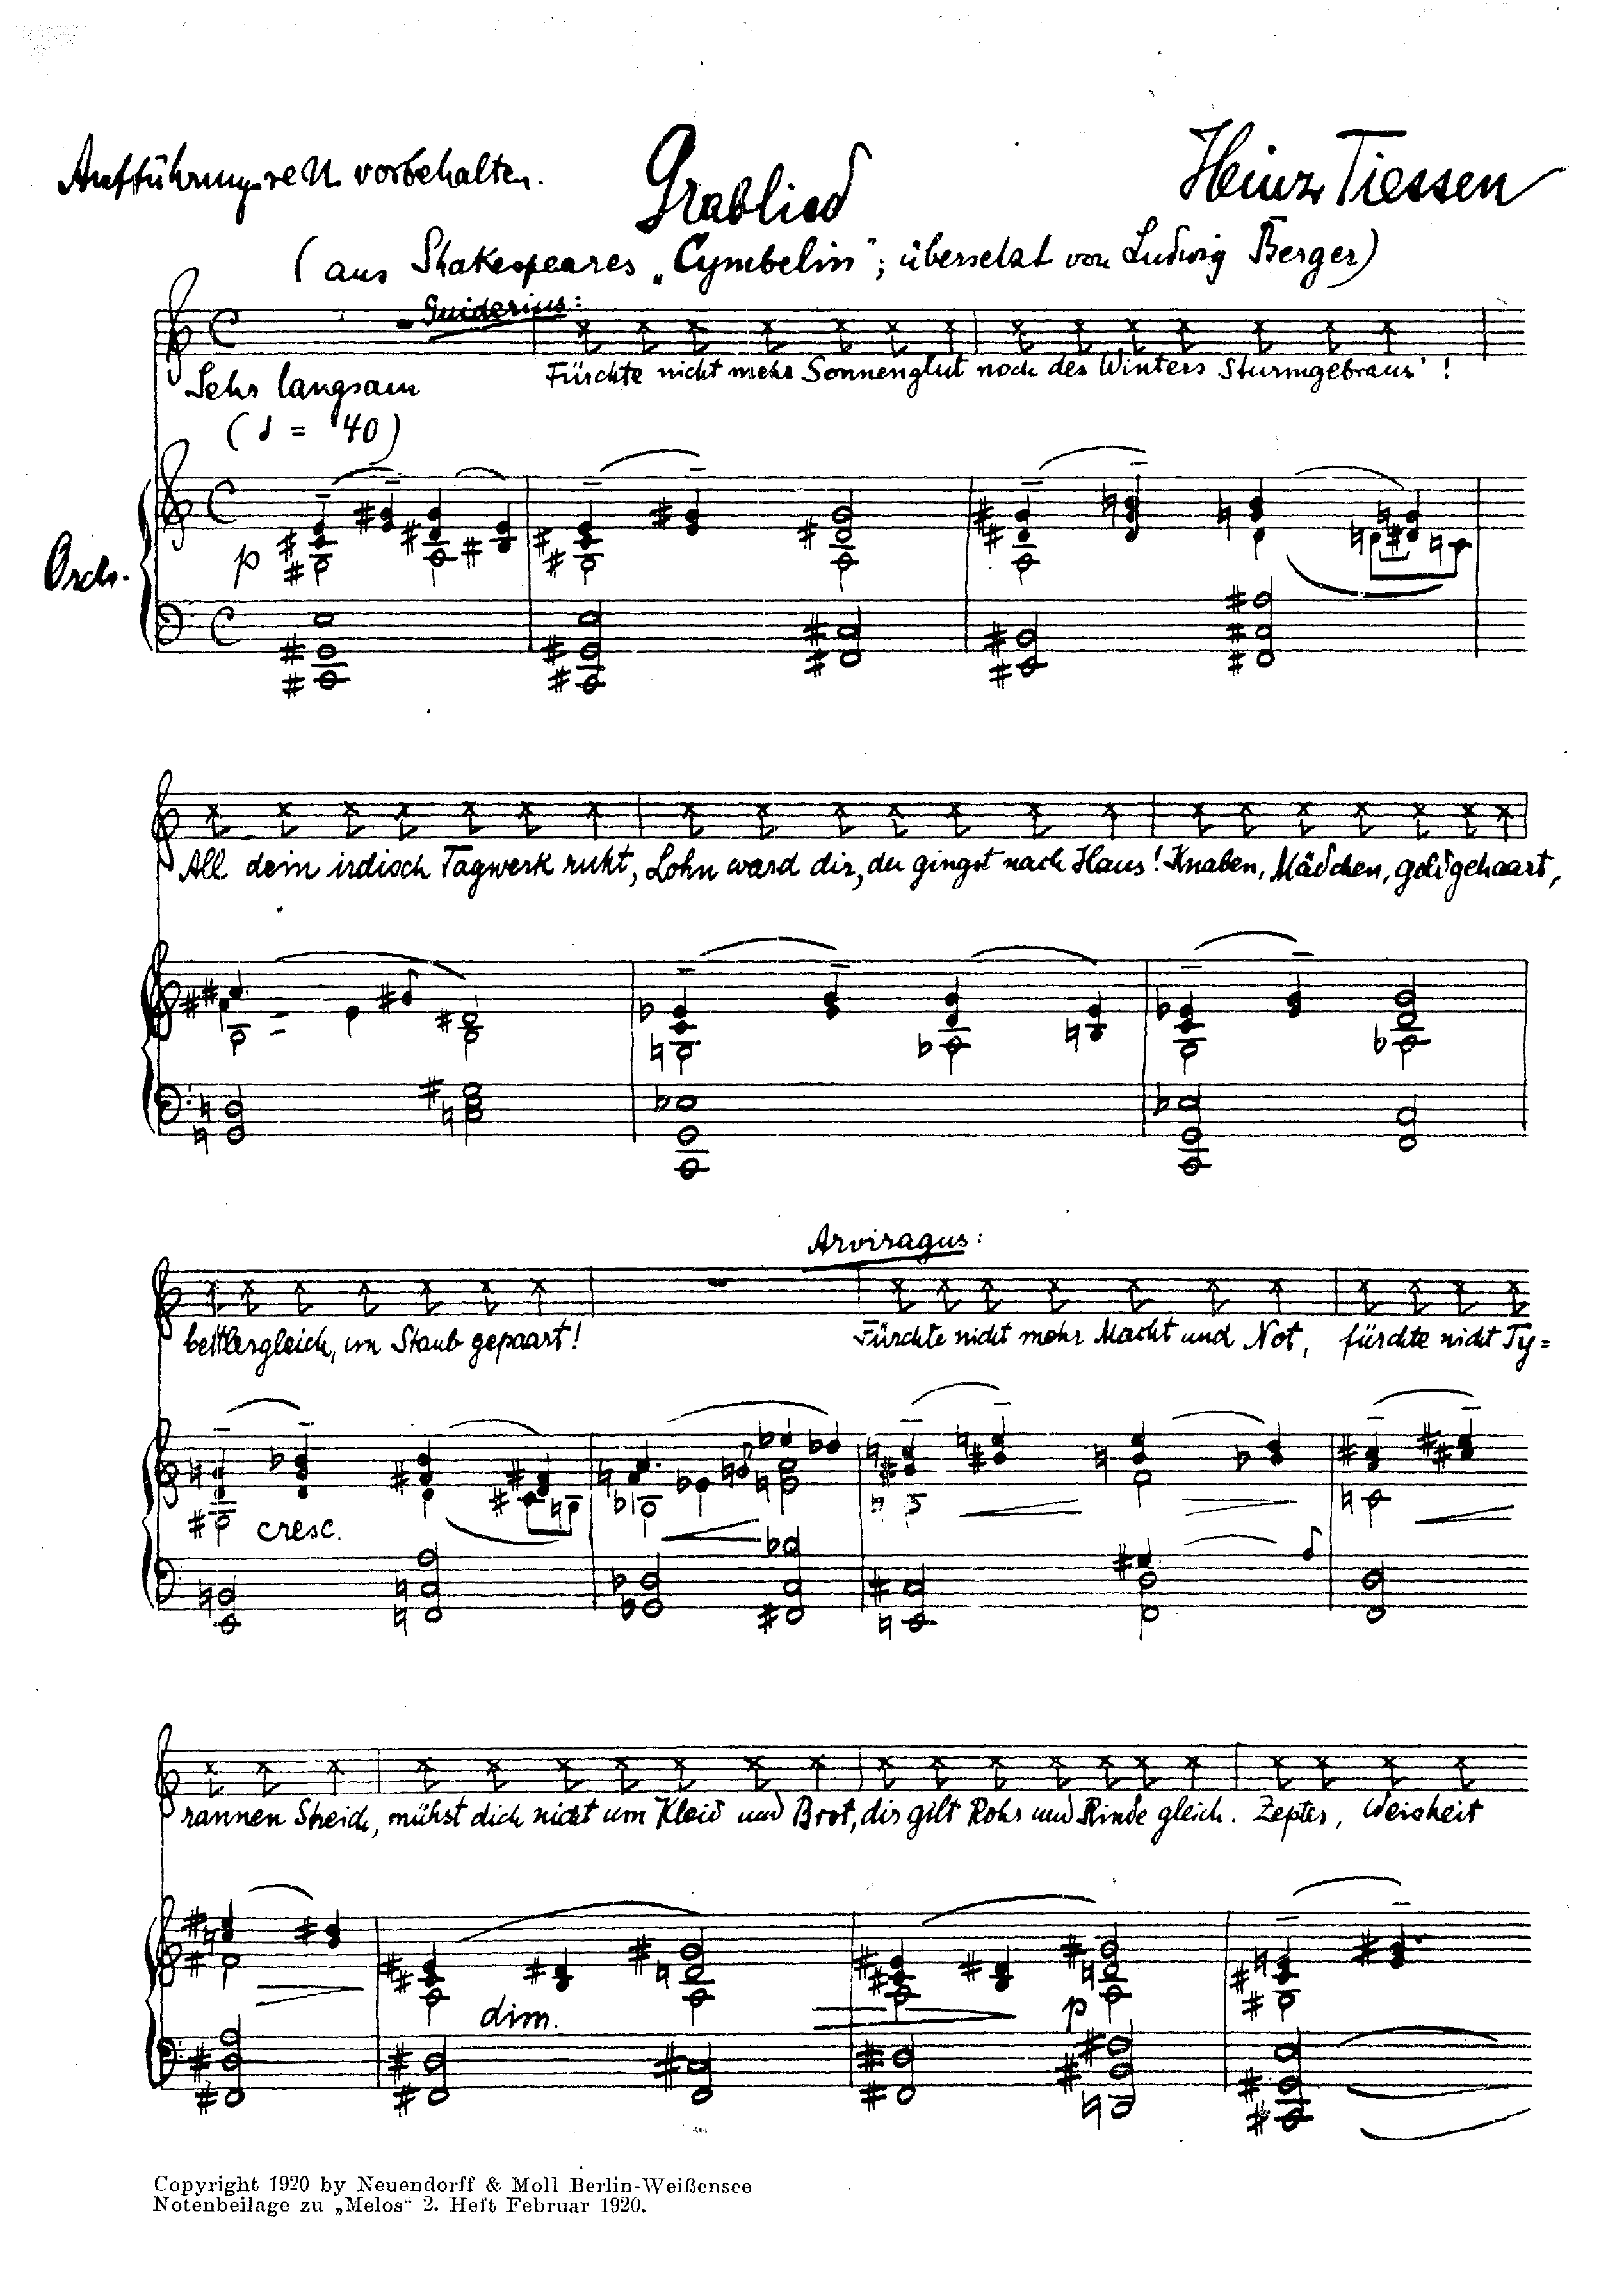 Aufführungsrecht vorbehalten.
Grablied
Heinz Tiessen
(aus Shakespeares „Cymbelin"; übersetzt von Ludwig Berger)
Guiderius:
Fürchte nicht mehr Sonnenglut noch des Winters Sturmgebraus'!
Sehr langsam
(♩ = 40)
Orch.
p
All dein irdisch Tagwerk ruht, Lohn ward dir, du gingst nach Haus! Knaben, Mädchen, goldgehaart,
Arviragus:
bettlergleich, im Staub gepaart! Fürchte nicht mehr Macht und Not, fürchte nicht Ty=
cresc.
rannen Streich, mühst dich nicht um Kleid und Brot, dir gilt Rohr und Rinde gleich. Zepter, Weisheit
dim.
p
Copyright 1920 by Neuendorff & Moll Berlin-Weißensee
Notenbeilage zu „Melos" 2. Heft Februar 1920.